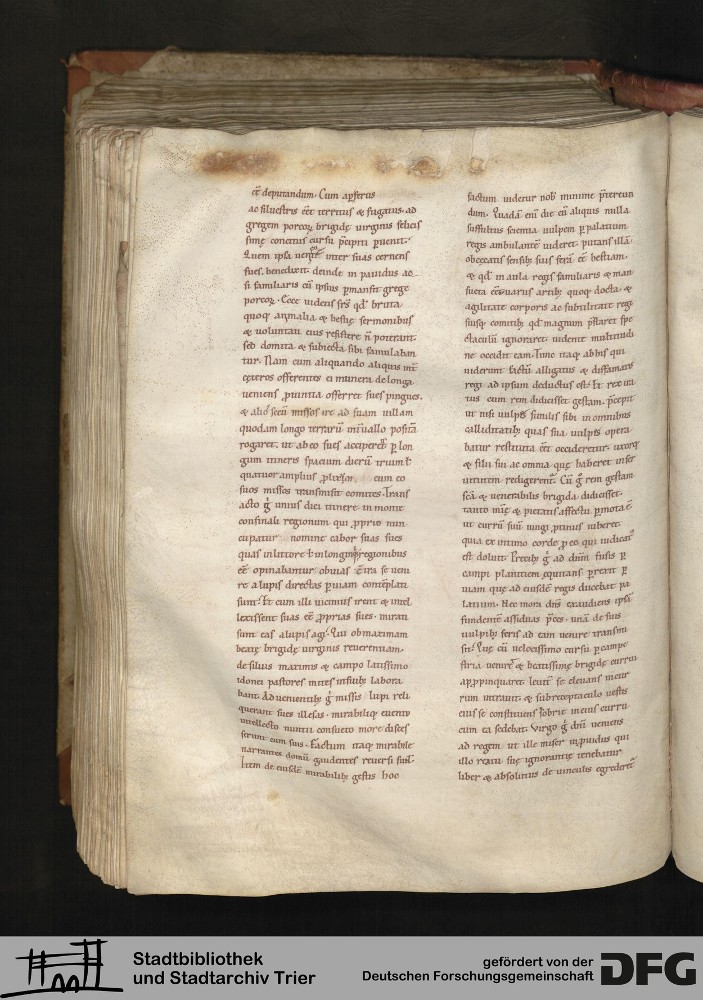 cē deputandum. Cum ap̄ ferus
ac siluestris cēt territus & fugatus. ad
gregem porcoꝝ brigidę uirginis felicis
simę concitus cursu p̄cipiti ꝑuenit.
Quem ipsa inter suas cernens
sues. benedixit. deinde in pauidus ac
si familiaris cū ipsius ꝑmansit grege
porcoꝝ. Ecce uidens frs̄ qd̄ bruta
quoq animalia & bestię sermonibus
& uoluntati eius resistere n̄ poterant.
sed domita & subiecta sibi famulaban
tur. Nam cum aliquando aliquis int̄
cęteros offerentes ei munera de longa
ueniens ꝓuintia offerret sues pingues.
& alios secū missos ire ad suam uillam
quodam longo terrarū int̄uallo positā
rogaret. ut ab eo sues acciperet ꝑ lon
gum itineris spacium dierū trium ł
quatuor amplius cum eo
suos missos transmisit comites. Trans
acto g̊ unius diei itinere in monte
confinali regionum qui ꝓprio nun
cupatur nomine cabor suas sues
quas in littore ł in longinq̨ regionibus
eē opinabantur obuias cētra se ueni
re a lupis directas ꝑ uiam contēplati
sunt. Et cum illi uicinius irent & intel
lexissent suas eē ꝓprias sues. mirati
sunt eas a lupis agi. Qui ob maximam
beatę brigidę uirginis reuerentiam.
de siluis maximis & campo latissimo
idonei pastores mites in suib; labora
bant. Aduenientib; g̊ missis lupi reli
querant sues illesas. mirabiliq euentu
intellecto nuntii consueto more disces
serunt cum suis. Factum itaq mirabile
narrantes domū gaudentes reuersi sunt.
Item de eiusdē mirabilib; gestis hoc
factum uidetur nob̄ minime p̄tereun
dum. Quadā eni die cū aliquis nulla
suffultus scientia uulpem ꝑ palatium
regis ambulantē uideret. putans illā
obcęcatis sensib; suis ferā cē bestiam.
& qd̄ in aula regis familiaris & man
sueta cēt uariis artib; quoq docta. &
agilitate corporis ac subtilitate regi
suisq comitib; qd̄ magnum p̄staret spe
ctaculū ignoraret. uidente multitudi
ne occidit eam. Tunc itaq ab his qui
uiderunt factū alligatus & diffamatus
regi ad ipsum deductus est. Et rex ira
tus cum rem didicisset gestam. p̄cepit
ut nisi uulpes similis sibi in omnibus
calliditatib; quas sua uulpes opera
batur restituta cēt occideretur. uxorq
& filii sui ac omnia quę haberet in ser
uitutem redigerent̄. Cū g̊ rem gestam
scā & uenerabilis brigida didicisset.
tanto mię & pietatis affectu ꝑmota ē
ut currū suū iungi ꝓtinus iuberet.
quia ex intimo corde ꝓ eo qui iudicat̄
est doluit. Precib; g̊ ad dnm̄ fusis ꝑ
campi planitiem equitans ꝑrexit ꝑ
uiam quę ad eiusdē regis ducebat pa
latium. Nec mora dns̄ exaudiens ipsā
fundentē assiduas p̄ces. unā de suis
uulpib; feris ad eam uenire transmi
sit. Quę cū uelocissimo cursu ꝑ campe
stria ueniret & beatissimę brigidę currui
appropinquaret. leuit̄ se eleuans in cur
rum intrauit. & sub receptaculo uestis
eius se constituens sobrie in eius curru
cum ea sedebat. Virgo g̊ dnī ueniens
ad regem ut ille miser inꝓuidus qui
illo reatu suę ignorantię tenebatur
liber & absolutus de uinculis egrederet̄
Stadtbibliothek
und Stadtarchiv Trier
gefördert von der
Deutschen Forschungsgemeinschaft
DFG